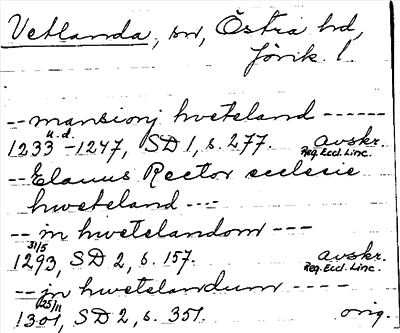 Vetlanda, sn, Östra hd,
Jönk. l.
-- mansionj hveteland ------
u. d.
1233-1247, SD 1, s. 277. avskr.
Reg. Eccl. Linc.
-- Elauus Rector ecclesie
hweteland ---
-- in hwetelandom ---
31/5
1293, SD 2, s. 157. avskr.
Reg. Eccl. Linc.
-- in hwetelandum ----
25/11
1301, SD 2, s. 351. orig.